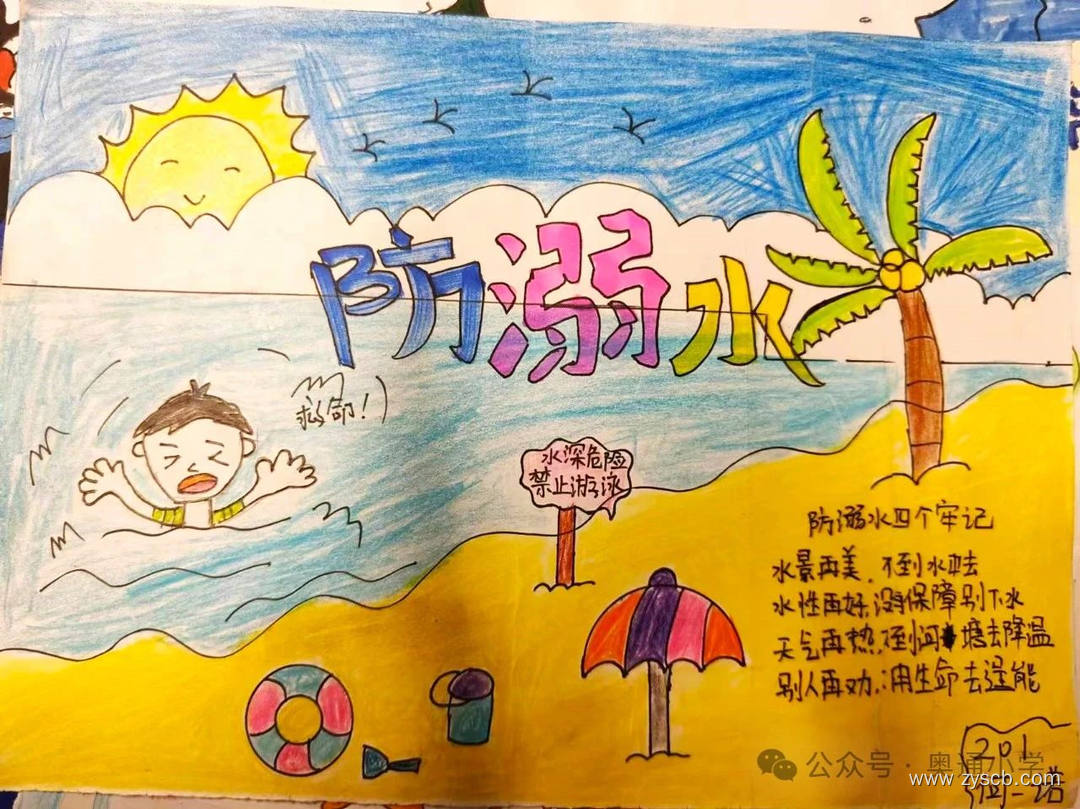 防溺水
救命！
水深危险
禁止游泳
防溺水四个牢记
水景再美，不到水中去
水性再好，没保障别下水
天气再热，不到河塘去降温
别人再劝，用生命去逞能
201
周一诺
公众号·奥通小学
www.zyscb.com